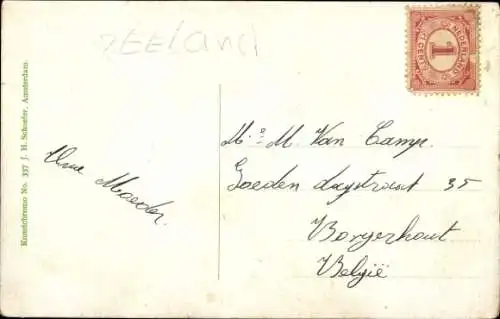 ZEELand
NEDERLAND
1
1 CENT
Kunstchromo No. 337 J. H. Schaefer, Amsterdam.
Uwe Moeder.
M. & M. Van Camp.
Goeden 35
Borgerhout
België